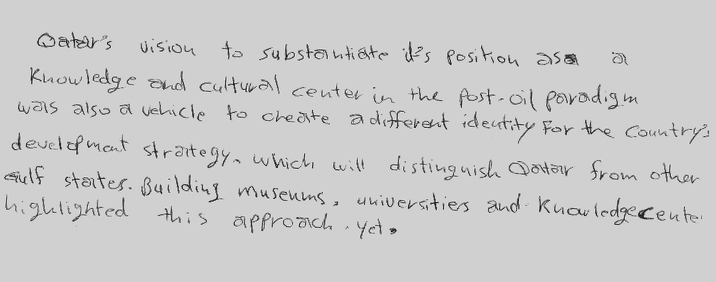 Qatar's vision to substantiate it's position as a a
Knowledge and cultural center in the post-oil paradigm
was also a vehicle to create a different identity For the Country's
development strategy. which will distinguish Qatar from other
Gulf states. Building museums, universities and Knowledge cente
highlighted this approach. yet.